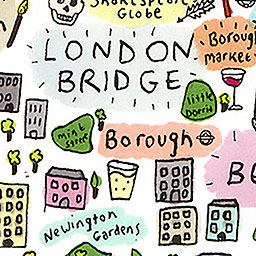 Shakespeare
Globe
LONDON
BRIDGE
Borough
market
little
dorrit
mint
street
Borough
BE
Newington
Gardens